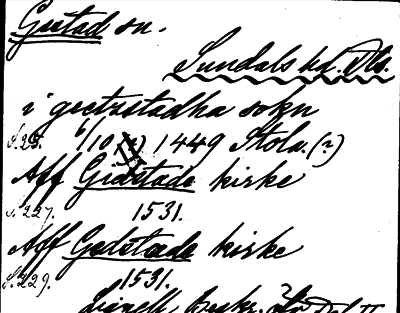 Gestad sn.
Sundals hd. Dls.
i gestzstadha sokn
S. 25. 6/10 (?) 1449 Stola. (?)
Aff Gidstade kirke
S. 227. 1531.
Aff Gedstæde kirke
S. 229. 1531.
Lignell, Beskr.